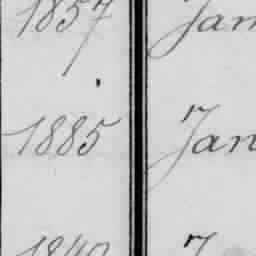 1857 Jan
1885 Jan
1840 J